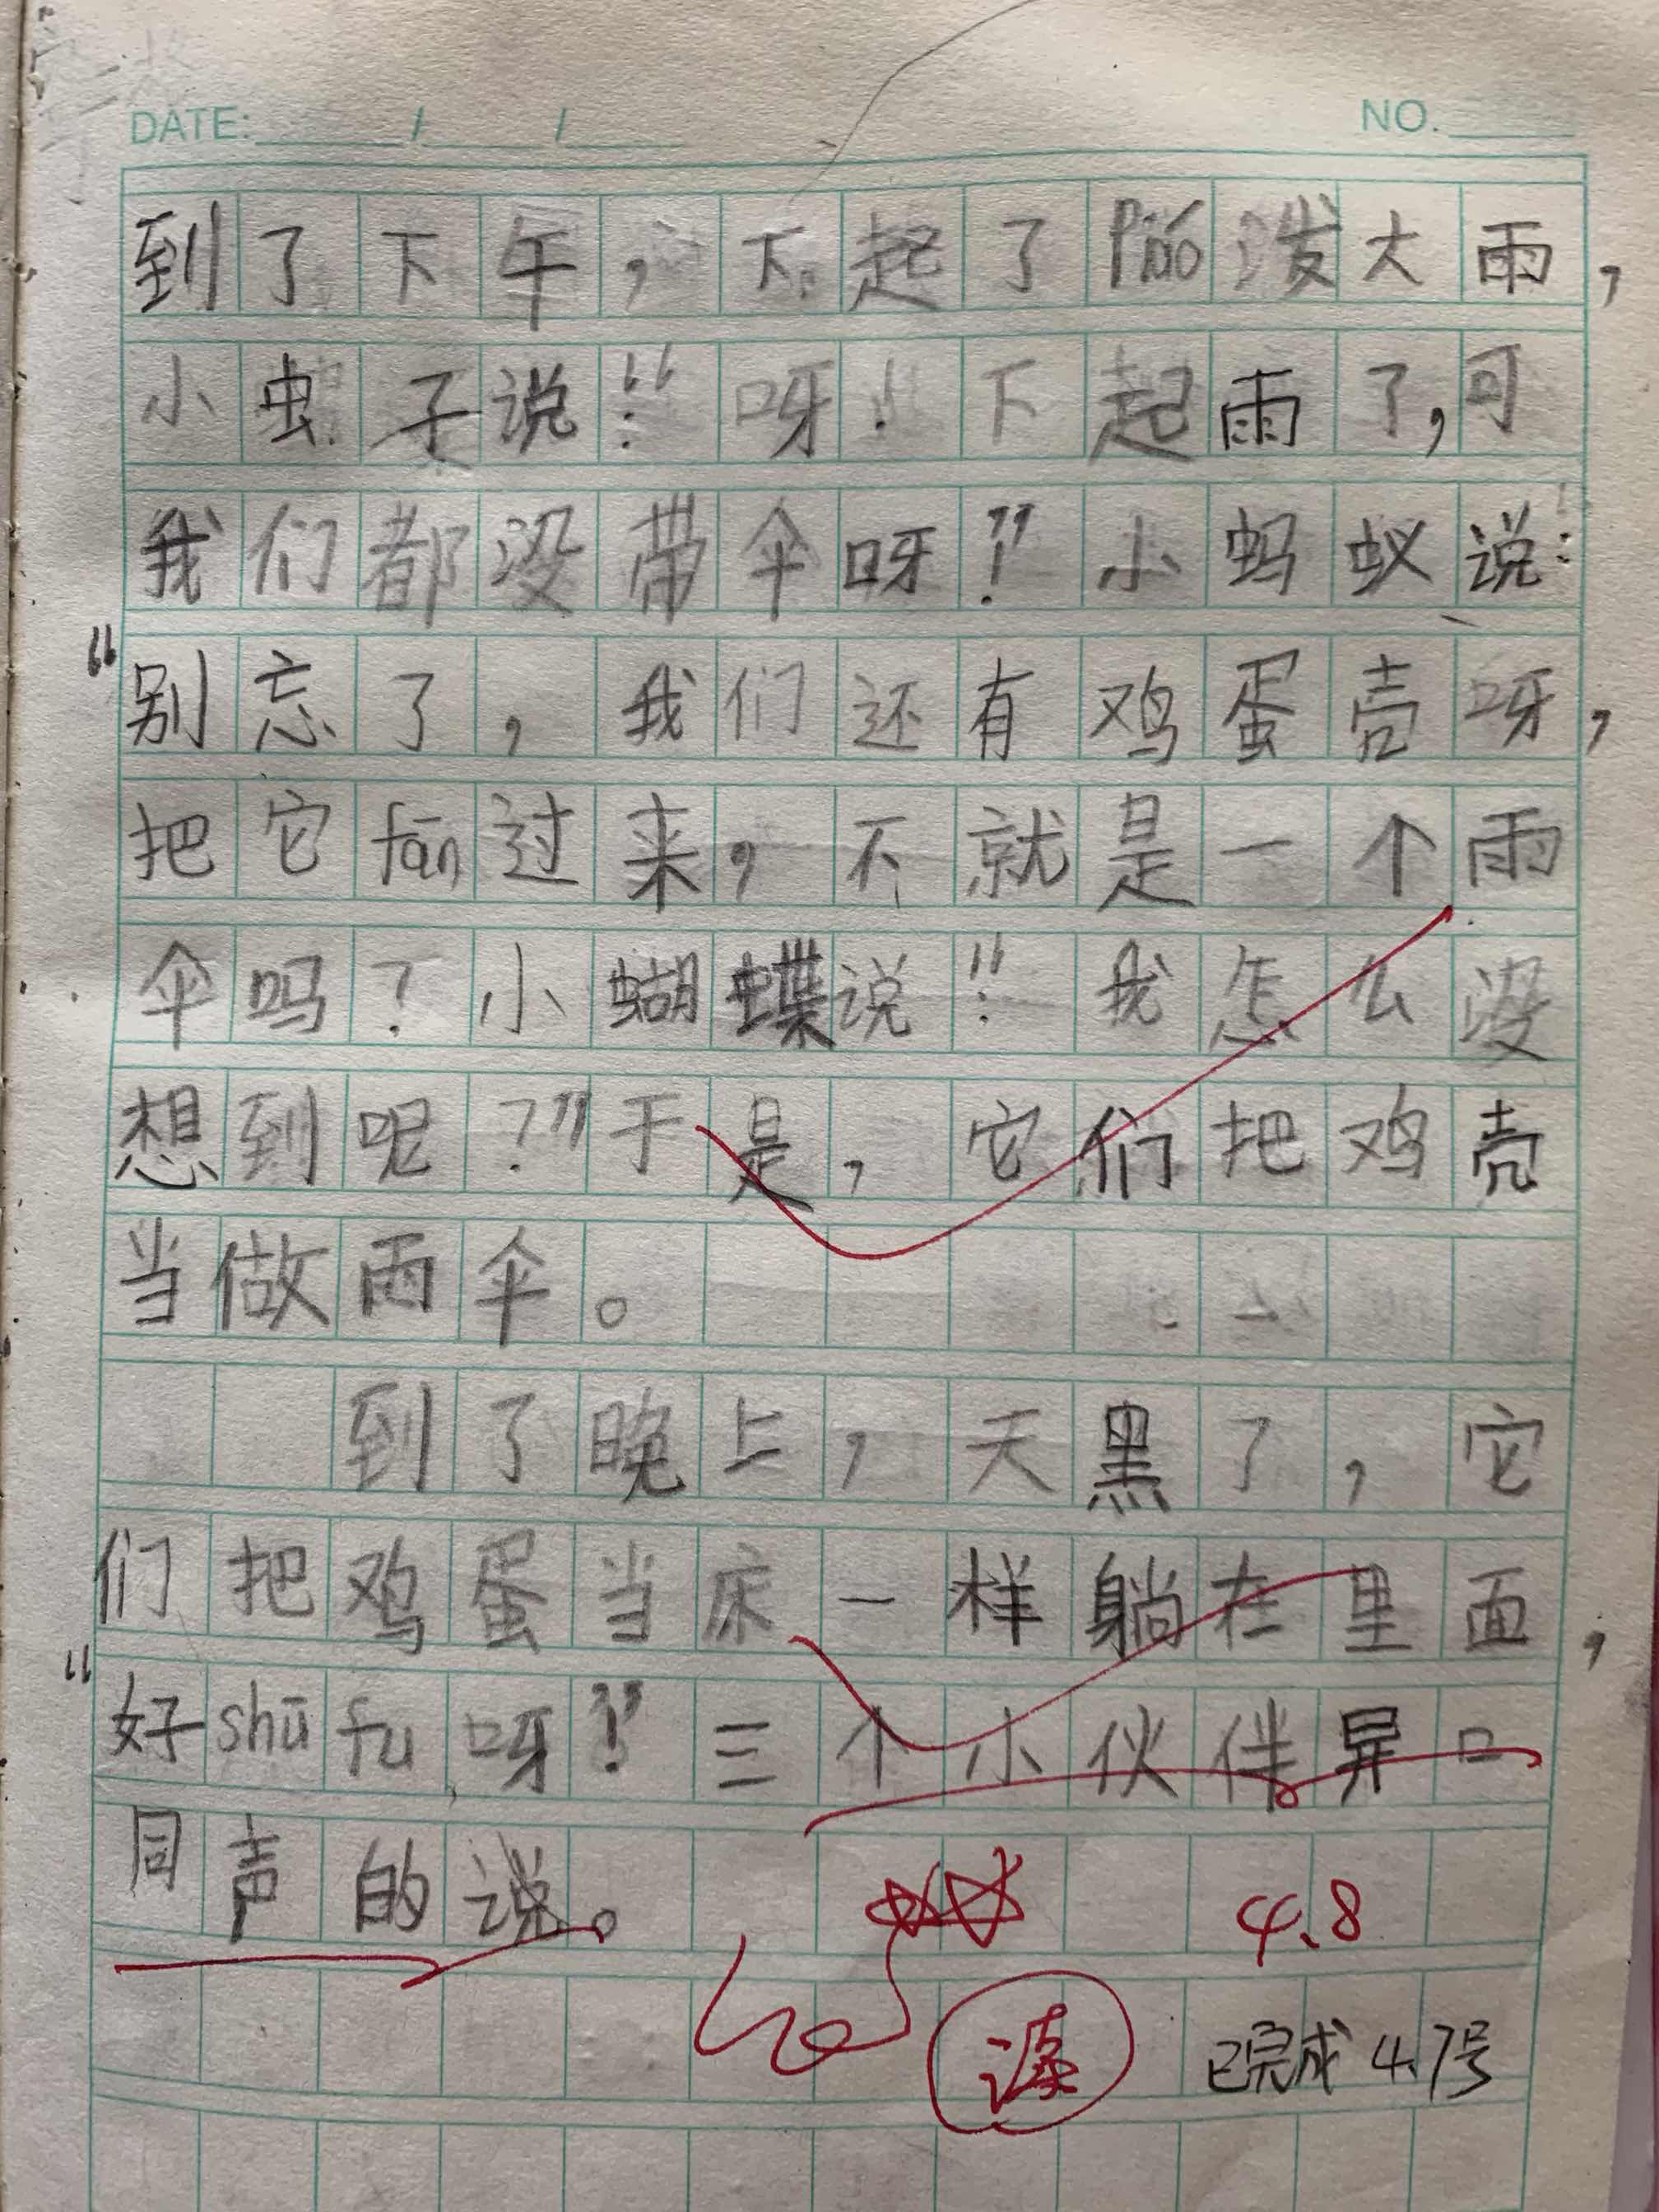 DATE: / / NO.
到了下午，下起了piáo泼大雨，
小虫子说：“呀！下起雨了，可
我们都没带伞呀！”小蚂蚁说：
“别忘了，我们还有鸡蛋壳呀，
把它fān过来，不就是一个雨
伞吗？小蝴蝶说：“我怎么没
想到呢？”于是，它们把鸡壳
当做雨伞。
到了晚上，天黑了，它
们把鸡蛋当床一样躺在里面，
“好shūfu呀！”三个小伙伴异口
同声的说。
4.8
读
已完成4.7号